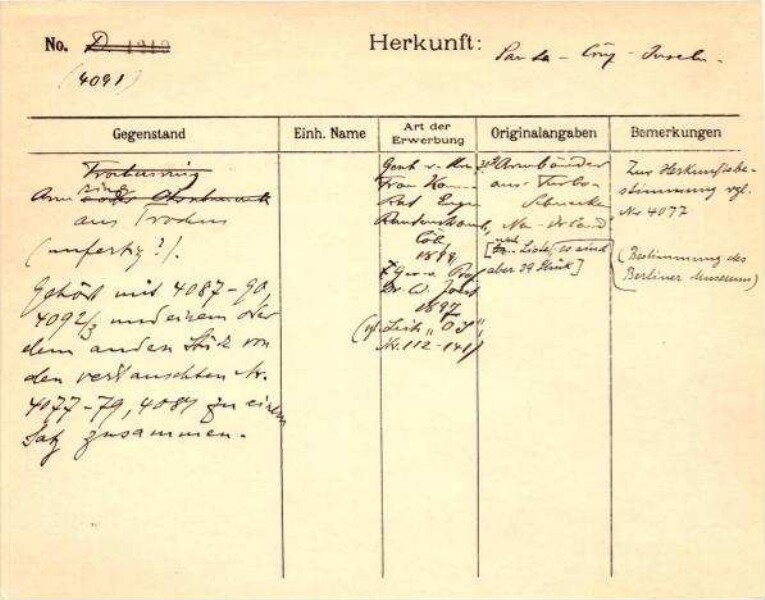 No. D. 1210
Herkunft: Santa - Cruz - Inseln.
(4091)
Gegenstand
Einh. Name
Art der Erwerbung
Originalangaben
Bemerkungen
Armring
aus Trochus
(unfertig?).
Gehört mit 4087-90,
4092/3 und einem oder
dem anderen Stück von
den vertauschten Nr.
4077-79, 4084 zu einem
Satz zusammen.
Gesch. v.
Frau
Eugen
Rautenstrauch,
Cöln
1899
Prof.
Dr. W. Joest
1897
Liste "OS",
Nr. 112-141)
30 Armbänder
aus Turbo-
Schnecke
[nach Liste, es sind
aber 29 Stück]
Zur Herkunftsbe-
stimmung vgl.
Nr 4077
(Bestimmung des
Berliner Museums)